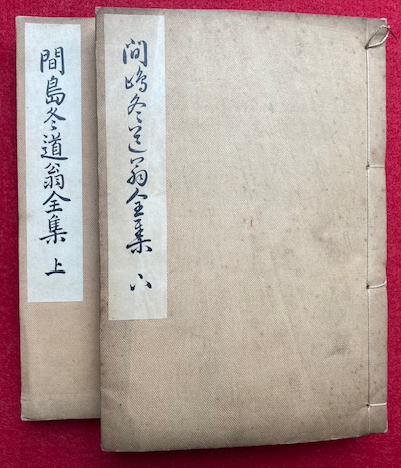 間嶋冬道翁全集 下
間島冬道翁全集 上